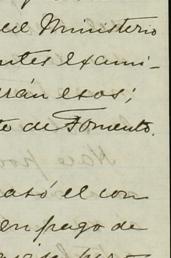 del Ministerio
ntes exami-
rán esos;
te de Fomento.
asó el con
en pago de